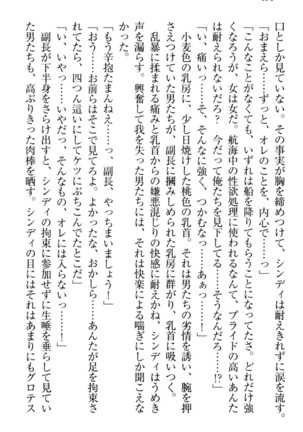 口としか見ていない。その事実が胸を締めつけて、シンディは耐えかねて叫んだ。
「おまえら……ずっと、オレのことを、内心……っ」
「こんなことがなくても、いずれは船を降りてもらうことになってたさ。どれだけ強
くなろうが、女は女だ。航海中の性欲処理に使われるなんて、プライドの高いあんた
は耐えられないだろ？　今だって俺たちを見下してる……そうなんだろ……!?」
「い、痛いっ……そ、そんなに強く、つかむなっ……あぁっ……！」
　小麦色の乳房に、少し日焼けした桃色の乳首。それは男たちの劣情を誘い、腕を押
さえつけていた男たちが、副長に掴みしめられた乳房に群がり、乳首に吸いつく。
　乱暴に揉まれる痛みと乳首からの嫌悪混じりの快感に耐えかね、シンディはうめき
声を漏らす。興奮して我を失った男たちには、それは快楽による喘ぎにしか聞こえな
「もう辛抱たまんねえっ……副長、やっちまいましょう！」
「おう……お前らはそこで見てろよ。よかったな、おかしら……あんたが足を拘束さ
れてたら、四つん這いにしてケツにぶちこんでたとこだ」
「い、いやっ……いやだっ、そんなもの、オレには入らないっ……！」
　副長が下半身をさらけ出すと、シンディの拘束に参加せずに生唾を垂らして見てい
た男たちも、高ぶりきった肉棒を晒す。シンディの目にはそれはあまりにもグロテス